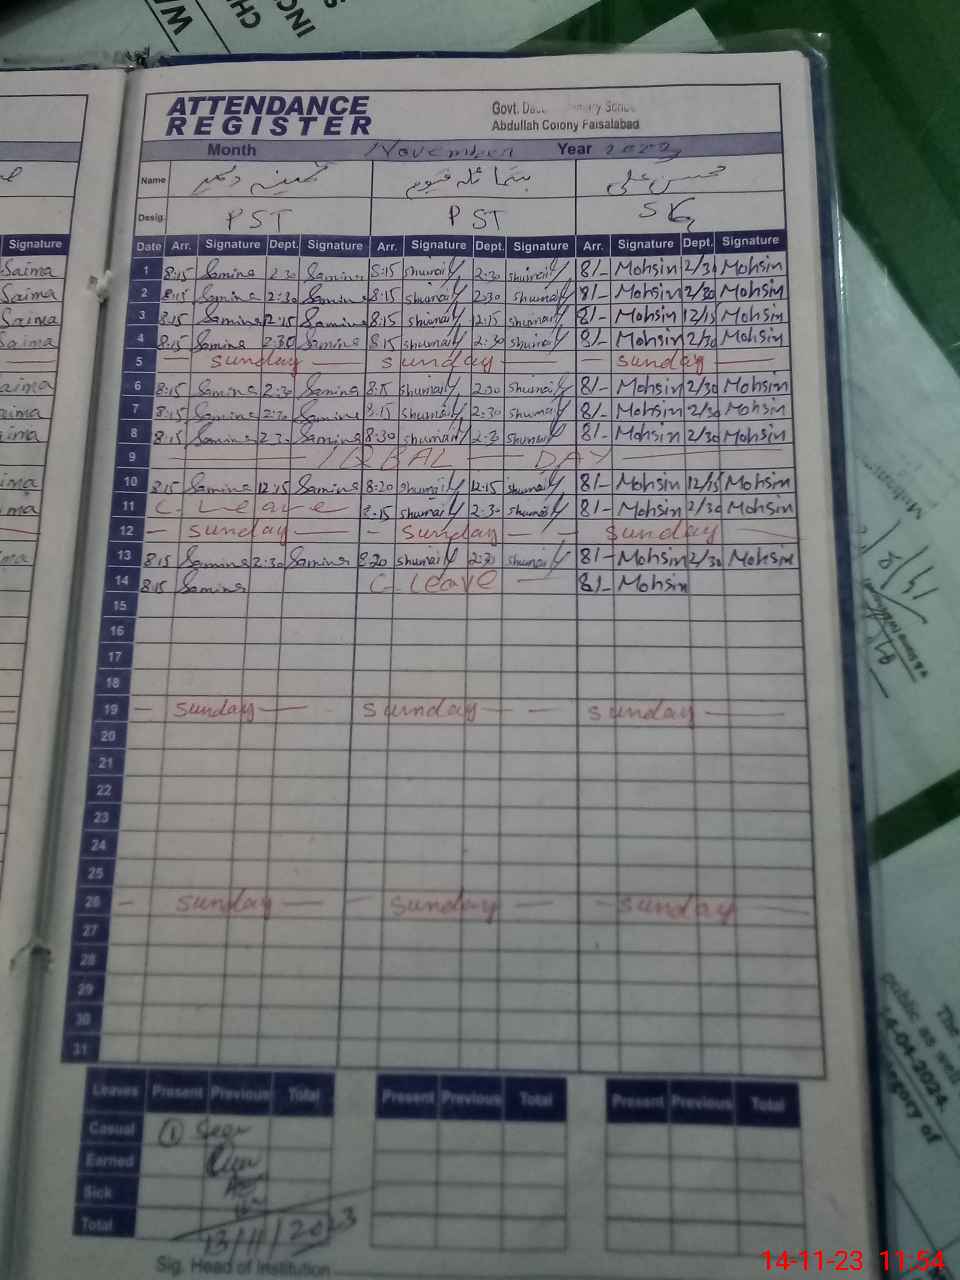 ATTENDANCE
REGISTER
Govt.
Abdullah Colony Faisalabad
Month November Year 2023
Name محسن علی
Desig. PST PST SK
Signature Date Arr. Signature Dept. Signature Arr. Signature Dept. Signature Arr. Signature Dept. Signature
Saima 1 8:15 Samina 2:30 Samina 8:15 shumaily 2:30 shumaily 8/- Mohsin 2/30 Mohsin
Saima 2 8:15 Samina 2:30 Samina 8:15 shumaily 2:30 shumaily 8/- Mohsin 2/30 Mohsin
Saima 3 8:15 Samina 12:15 Samina 8:15 shumaily 12:15 shumaily 8/- Mohsin 12/15 Mohsin
Saima 4 8:15 Samina 2:30 Samina 8:15 shumaily 2:30 shumaily 8/- Mohsin 2/30 Mohsin
5 Sunday Sunday Sunday
aima 6 8:15 Samina 2:30 Samina 8:15 shumaily 2:30 shumaily 8/- Mohsin 2/30 Mohsin
aima 7 8:15 Samina 2:30 Samina 8:15 shumaily 2:30 shumaily 8/- Mohsin 2/30 Mohsin
ima 8 8:15 Samina 2:30 Samina 8:30 shumaily 2:30 shumaily 8/- Mohsin 2/30 Mohsin
9 IQBAL DAY
ima 10 8:15 Samina 12:15 Samina 8:20 shumaily 12:15 shumaily 8/- Mohsin 12/15 Mohsin
ima 11 C. Leave 8:15 shumaily 2:30 shumaily 8/- Mohsin 2/30 Mohsin
12 Sunday Sunday Sunday
ima 13 8:15 Samina 2:30 Samina 8:20 shumaily 2:30 shumaily 8/- Mohsin 2/30 Mohsin
14 8:15 Samina C. Leave 8/- Mohsin
15
16
17
18
19 Sunday Sunday Sunday
20
21
22
23
24
25
26 Sunday Sunday Sunday
27
28
29
30
31
Leaves Present Previous Total Present Previous Total Present Previous Total
Casual ① Seen
Earned
Sick
Total 13/11/2023
Sig. Head of Institution
public as well
14-04-2024
14-11-23 11:54